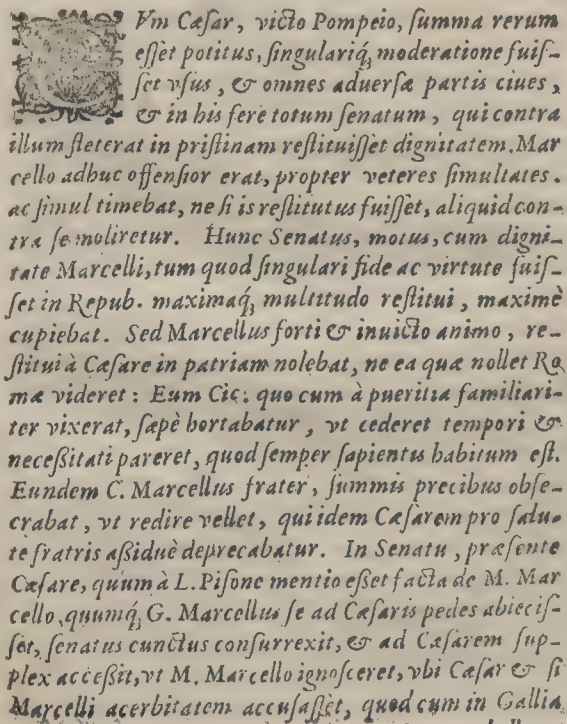 Vm Cæſar, victo Pompeio, ſumma rerum
eſſet potitus, ſingulariq́; moderatione fuiſ-
ſet vſus, & omnes aduerſæ partis ciues,
& in his fere totum ſenatum, qui contra
illum ſteterat in priſtinam reſtituiſſet dignitatem. Mar
cello adhuc offenſior erat, propter veteres ſimultates.
ac ſimul timebat, ne ſi is reſtitutus fuiſſet, aliquid con-
tra ſe moliretur. Hunc Senatus, motus, cum digni-
tate Marcelli, tum quod ſingulari fide ac virtute fuiſ-
ſet in Repub. maximaq́; multitudo reſtitui, maximè
cupiebat. Sed Marcellus forti & inuicto animo, re-
ſtitui à Cæſare in patriam nolebat, ne ea quæ nollet Ro
mæ videret: Eum Cic: quo cum à pueritia familiari-
ter vixerat, ſæpè hortabatur, vt cederet tempori &
neceßitati pareret, quod ſemper ſapientis habitum eſt.
Eundem C. Marcellus frater, ſummis precibus obſe-
crabat, vt redire vellet, qui idem Cæſarem pro ſalu-
te fratris aßiduè deprecabatur. In Senatu, præſente
Cæſare, quum à L. Piſone mentio eßet facta de M. Mar
cello, quumq́; G. Marcellus ſe ad Cæſaris pedes abieciſ-
ſet, ſenatus cunctus conſurrexit, & ad Cæſarem ſup-
plex acceßit, vt M. Marcello ignoſceret, vbi Cæſar & ſi
Marcelli acerbitatem accuſaſſet, quod cum in Gallia